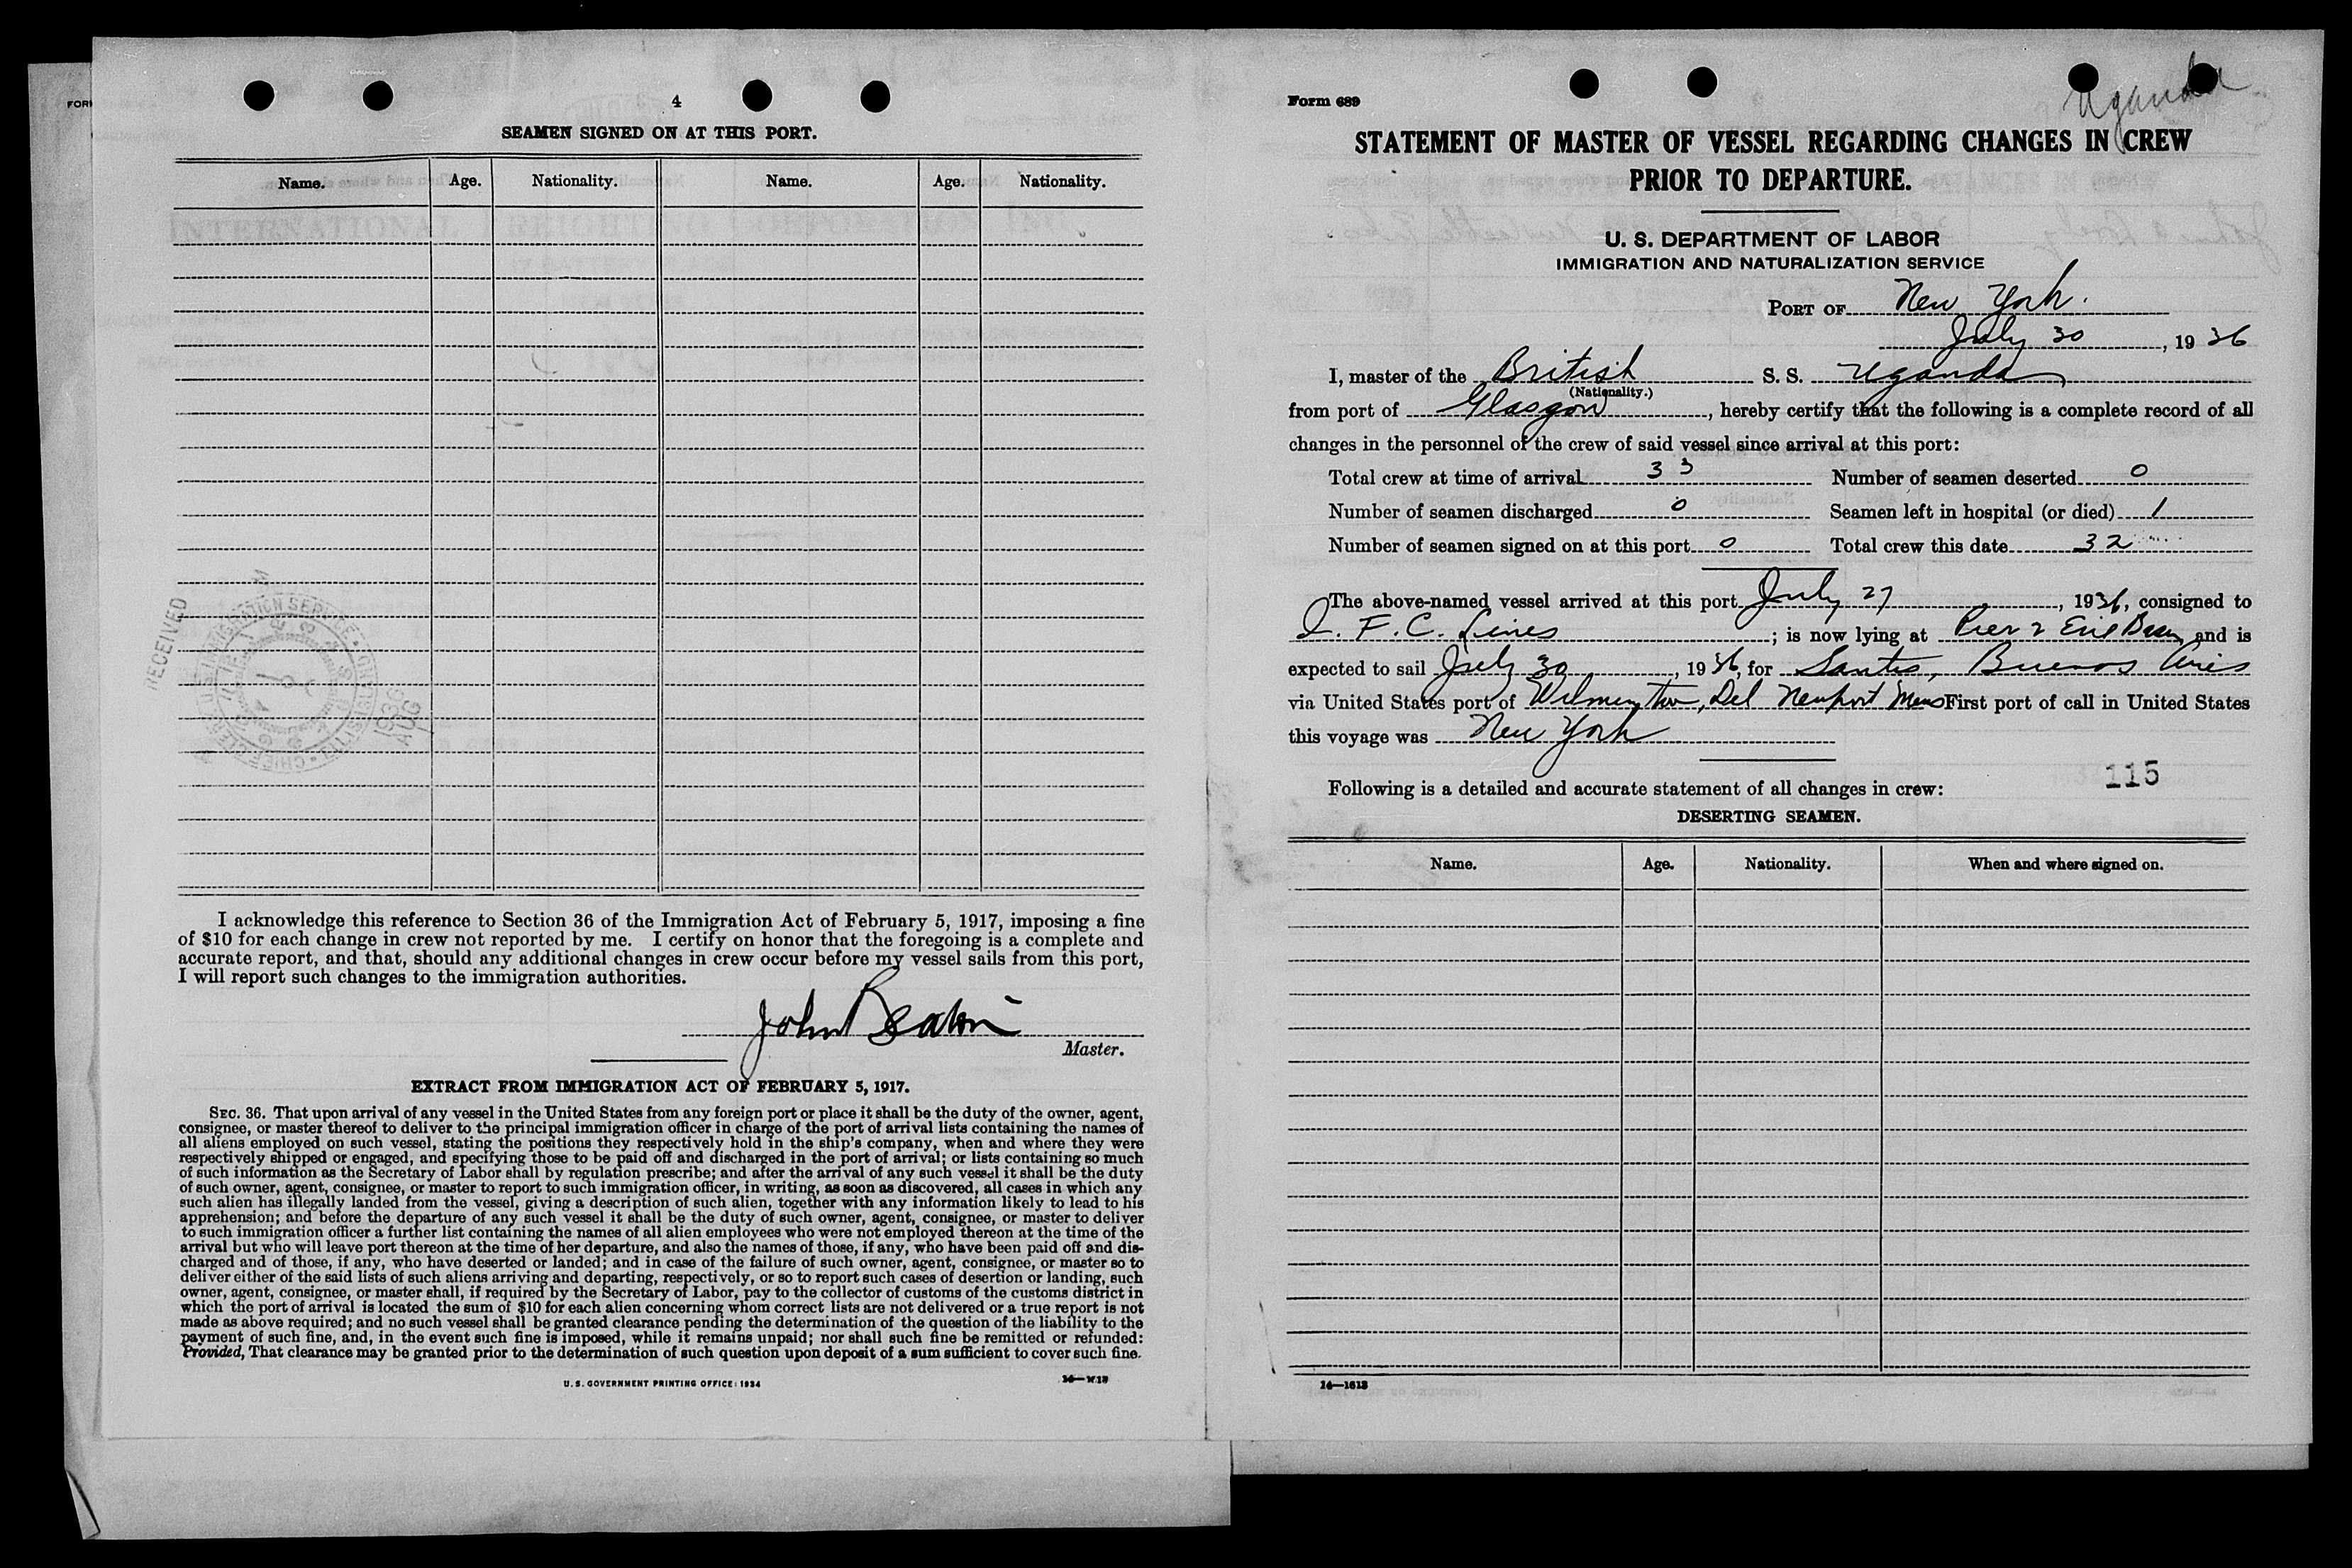 FORM
4
SEAMEN SIGNED ON AT THIS PORT.
Name. Age. Nationality. Name. Age. Nationality.
RECEIVED
1936 AUG
I acknowledge this reference to Section 36 of the Immigration Act of February 5, 1917, imposing a fine
of $10 for each change in crew not reported by me. I certify on honor that the foregoing is a complete and
accurate report, and that, should any additional changes in crew occur before my vessel sails from this port,
I will report such changes to the immigration authorities.
John
Master.
EXTRACT FROM IMMIGRATION ACT OF FEBRUARY 5, 1917.
SEC. 36. That upon arrival of any vessel in the United States from any foreign port or place it shall be the duty of the owner, agent,
consignee, or master thereof to deliver to the principal immigration officer in charge of the port of arrival lists containing the names of
all aliens employed on such vessel, stating the positions they respectively hold in the ship's company, when and where they were
respectively shipped or engaged, and specifying those to be paid off and discharged in the port of arrival; or lists containing so much
of such information as the Secretary of Labor shall by regulation prescribe; and after the arrival of any such vessel it shall be the duty
of such owner, agent, consignee, or master to report to such immigration officer, in writing, as soon as discovered, all cases in which any
such alien has illegally landed from the vessel, giving a description of such alien, together with any information likely to lead to his
apprehension; and before the departure of any such vessel it shall be the duty of such owner, agent, consignee, or master to deliver
to such immigration officer a further list containing the names of all alien employees who were not employed thereon at the time of the
arrival but who will leave port thereon at the time of her departure, and also the names of those, if any, who have been paid off and dis-
charged and of those, if any, who have deserted or landed; and in case of the failure of such owner, agent, consignee, or master so to
deliver either of the said lists of such aliens arriving and departing, respectively, or so to report such cases of desertion or landing, such
owner, agent, consignee, or master shall, if required by the Secretary of Labor, pay to the collector of customs of the customs district in
which the port of arrival is located the sum of $10 for each alien concerning whom correct lists are not delivered or a true report is not
made as above required; and no such vessel shall be granted clearance pending the determination of the question of the liability to the
payment of such fine, and, in the event such fine is imposed, while it remains unpaid; nor shall such fine be remitted or refunded:
Provided, That clearance may be granted prior to the determination of such question upon deposit of a sum sufficient to cover such fine.
U. S. GOVERNMENT PRINTING OFFICE: 1934
Form 689
Uganda
STATEMENT OF MASTER OF VESSEL REGARDING CHANGES IN CREW
PRIOR TO DEPARTURE.
U. S. DEPARTMENT OF LABOR
IMMIGRATION AND NATURALIZATION SERVICE
PORT OF New York.
July 30, 1936
I, master of the British S. S. Uganda,
(Nationality.)
from port of Glasgow, hereby certify that the following is a complete record of all
changes in the personnel of the crew of said vessel since arrival at this port:
Total crew at time of arrival 33 Number of seamen deserted 0
Number of seamen discharged 0 Seamen left in hospital (or died) 1
Number of seamen signed on at this port 0 Total crew this date 32
The above-named vessel arrived at this port July 27, 1936, consigned to
I. F. C. Lines; is now lying at Pier 2 Erie Basin and is
expected to sail July 30, 1936, for Santos, Buenos Aires
via United States port of Wilmington, Del Newport News First port of call in United States
this voyage was New York
115
Following is a detailed and accurate statement of all changes in crew:
DESERTING SEAMEN.
Name. Age. Nationality. When and where signed on.
14—1613